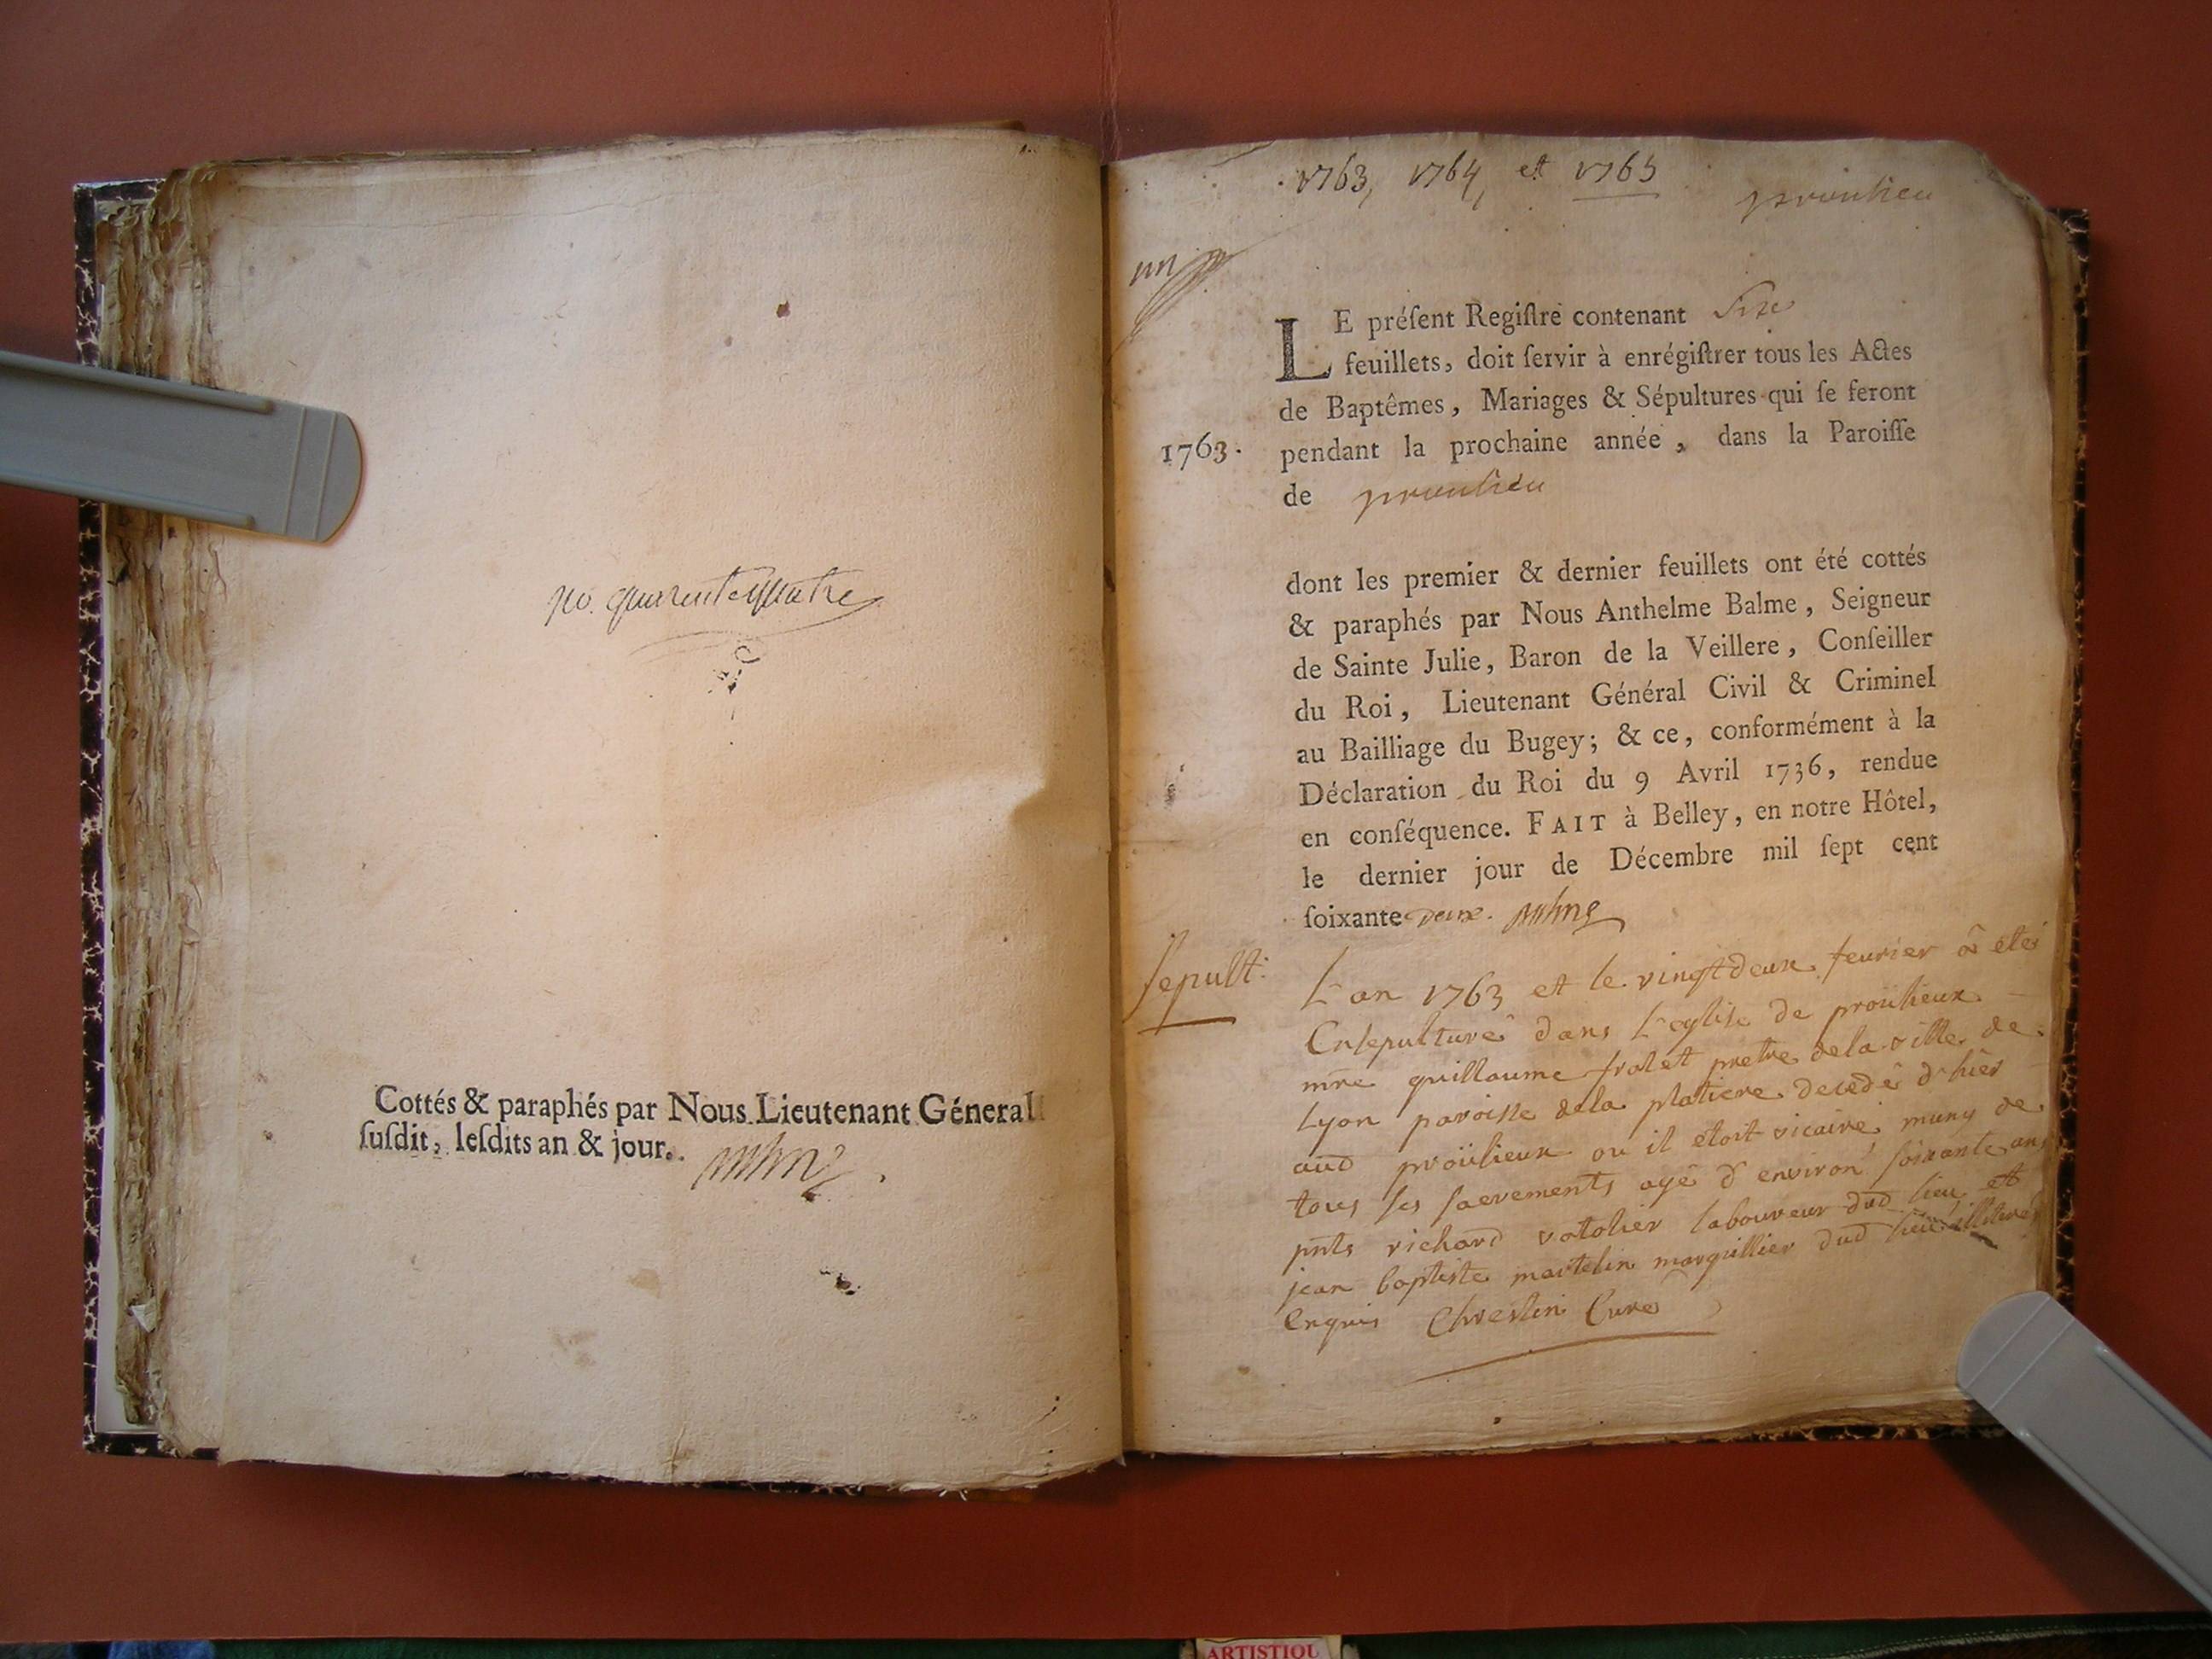 no. quarente quatre
Cottés & paraphés par Nous Lieutenant Géneral
ſuſdit, leſdits an & jour.
1763, 1764, et 1765
proulieu
un
LE préſent Regiſtre contenant Six
feuillets, doit ſervir à enrégiſtrer tous les Actes
de Baptêmes, Mariages & Sépultures qui ſe feront
1763. pendant la prochaine année, dans la Paroiſſe
de proulieu
dont les premier & dernier feuillets ont été cottés
& paraphés par Nous Anthelme Balme, Seigneur
de Sainte Julie, Baron de la Veillere, Conſeiller
du Roi, Lieutenant Général Civil & Criminel
au Bailliage du Bugey; & ce, conformément à la
Déclaration du Roi du 9 Avril 1736, rendue
en conſéquence. FAIT à Belley, en notre Hôtel,
le dernier jour de Décembre mil ſept cent
ſoixante deux.
sepult: L'an 1763 et le vingt deux feurier â étéi
Ensepulturé dans L'eglise de proülieux
mre guillaume frolet pretre de la ville de
Lyon paroisse de la platiere decedé d'hier
aud proülieux ou il étoit vicaire muny de
tous les sacrements agé d'environ soixante ans
pnts richard vatolier laboureur dud lieu et
jean baptiste martelin marguillier dud lieu illiterés
Enquis Chrestin Curé
ARTISTIQU